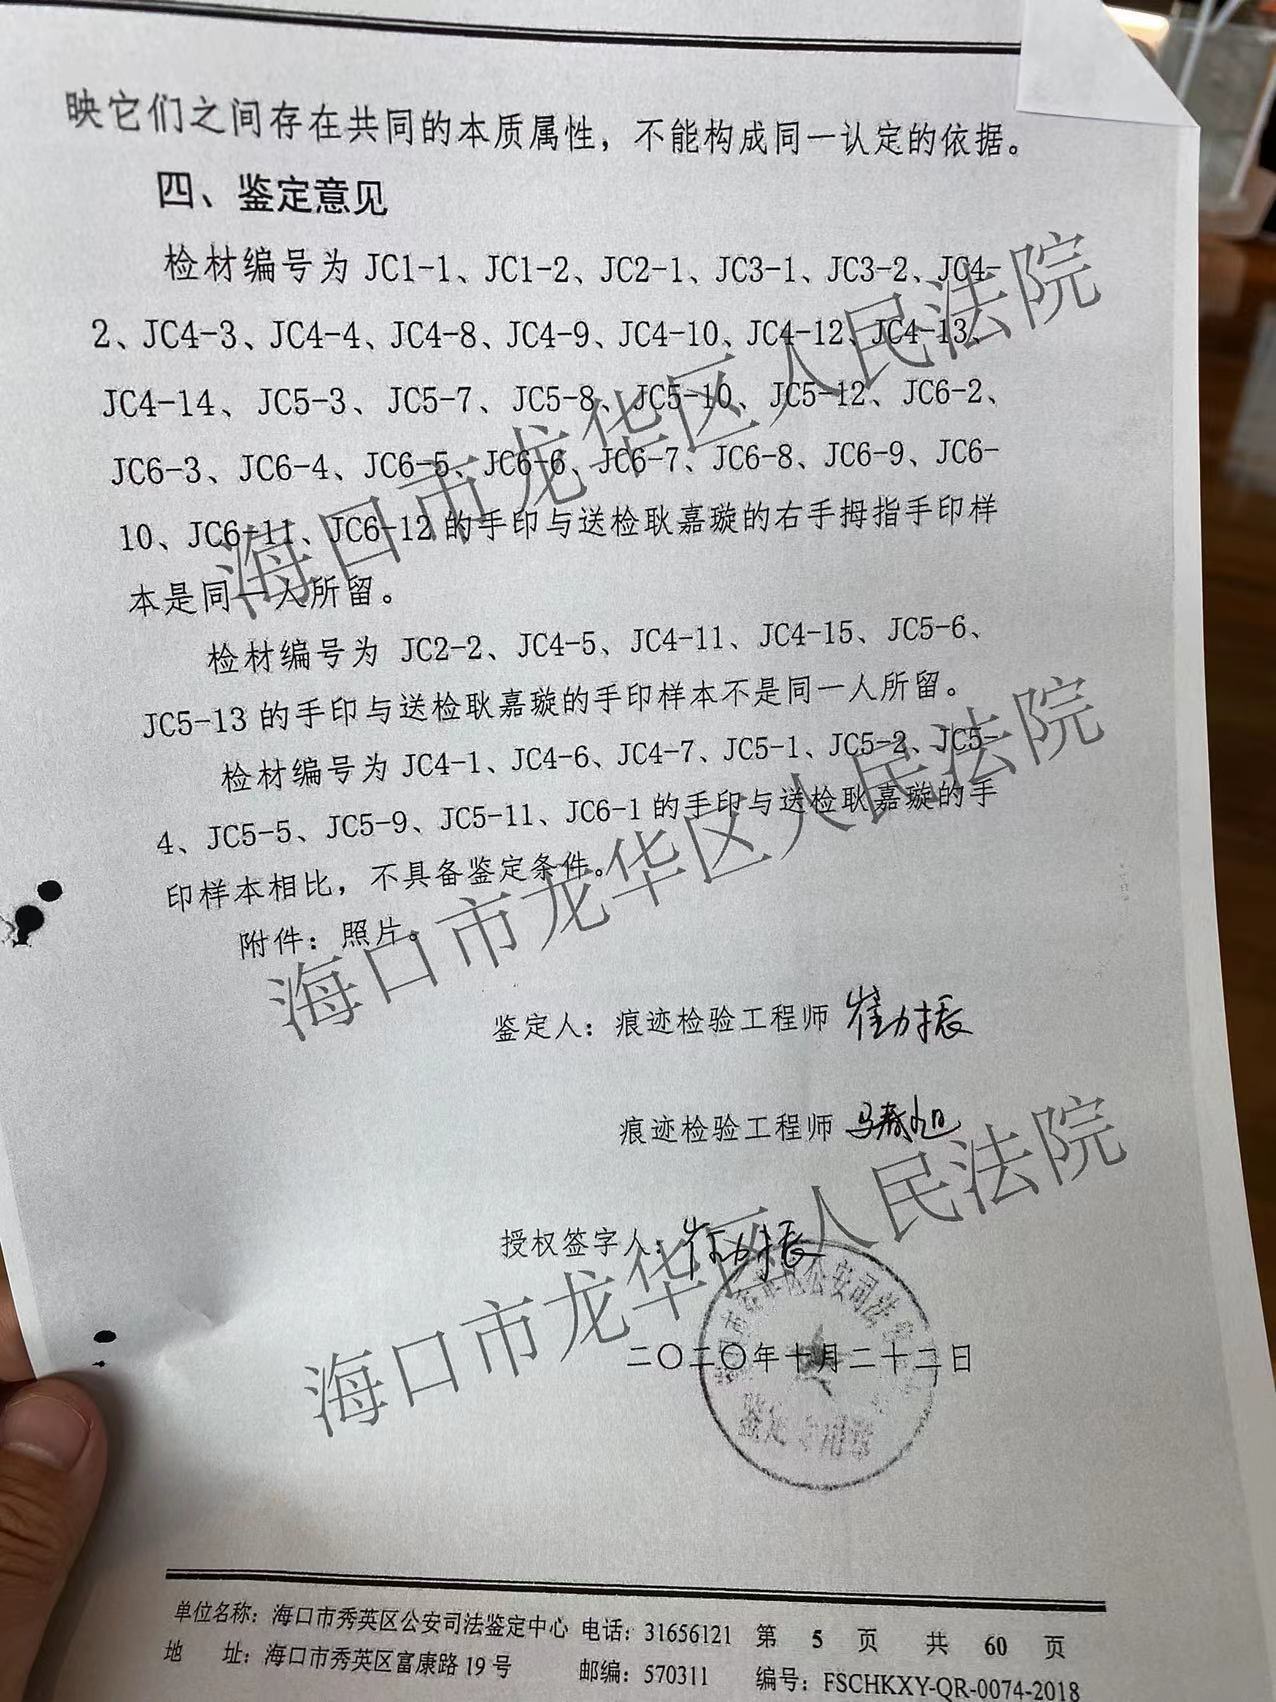 映它们之间存在共同的本质属性，不能构成同一认定的依据。
四、鉴定意见
检材编号为 JC1-1、JC1-2、JC2-1、JC3-1、JC3-2、JC4-
2、JC4-3、JC4-4、JC4-8、JC4-9、JC4-10、JC4-12、JC4-13、
JC4-14、JC5-3、JC5-7、JC5-8、JC5-10、JC5-12、JC6-2、
JC6-3、JC6-4、JC6-5、JC6-6、JC6-7、JC6-8、JC6-9、JC6-
10、JC6-11、JC6-12 的手印与送检耿嘉璇的右手拇指手印样
本是同一人所留。
检材编号为 JC2-2、JC4-5、JC4-11、JC4-15、JC5-6、
JC5-13 的手印与送检耿嘉璇的手印样本不是同一人所留。
检材编号为 JC4-1、JC4-6、JC4-7、JC5-1、JC5-2、JC5-
4、JC5-5、JC5-9、JC5-11、JC6-1 的手印与送检耿嘉璇的手
印样本相比，不具备鉴定条件。
附件：照片。
鉴定人：痕迹检验工程师 崔力振
痕迹检验工程师 马春旭
授权签字人：崔力振
二〇二〇年十月二十二日
公安司法
鉴定专用章
海口市龙华区人民法院
海口市龙华区人民法院
海口市龙华区人民法院
单位名称：海口市秀英区公安司法鉴定中心 电话：31656121 第 5 页 共 60 页
地 址：海口市秀英区富康路 19 号 邮编：570311 编号：FSCHKXY-QR-0074-2018